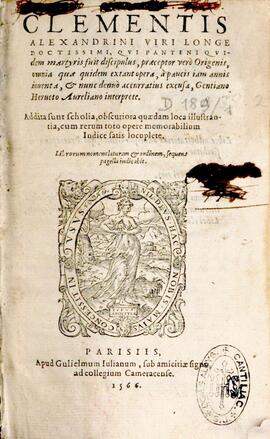 CLEMENTIS
ALEXANDRINI VIRI LONGE
DOCTISSIMI, QVI PANTENI QVI-
dem martyris fuit discipulus, præceptor verò Origenis,
omnia quæ quidem extant opera, à paucis iam annis
inuenta, & nunc denuò accuratius excusa, Gentiano
Herueto Aureliano interprete.
D 189/
Addita sunt scholia, obscuriora quædam loca illustran-
tia, cum rerum toto opere memorabilium
Indice satis locuplete.
Librorum nomenclaturam & ordinem, sequens
pagella indicabit.
PARISIIS,
Apud Gulielmum Iulianum, sub amicitiæ signo,
ad collegium Cameracense.
1566.